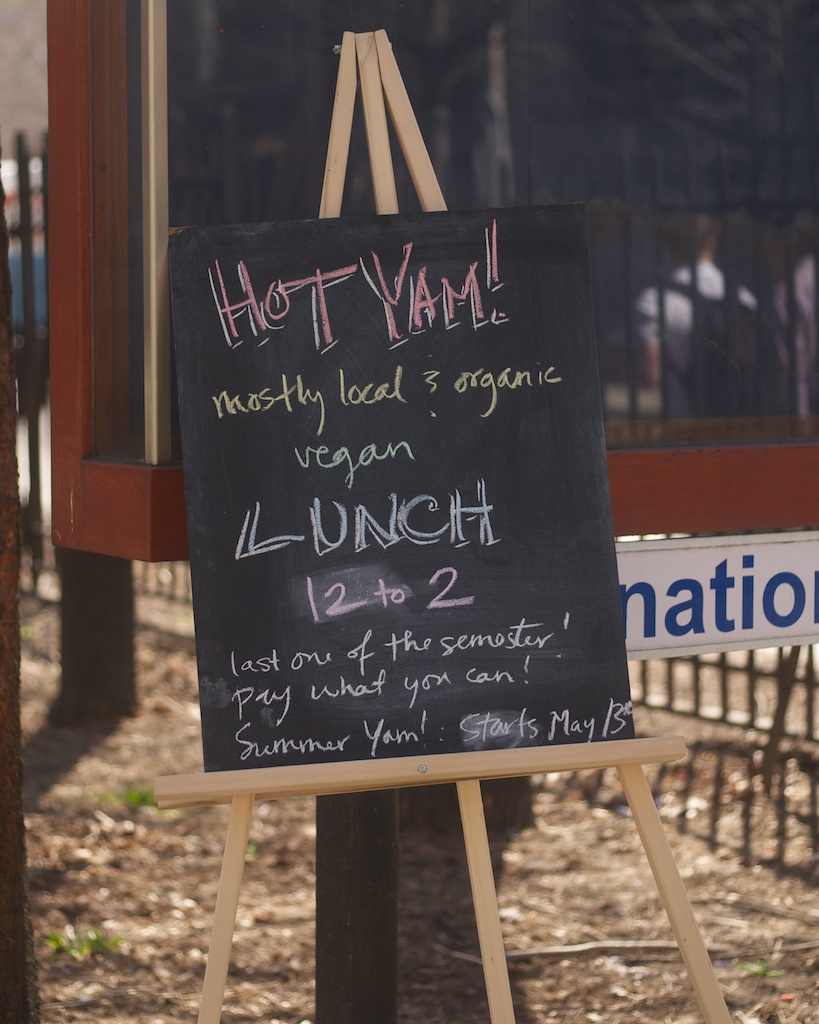 HOT YAM!
mostly local & organic
vegan
LUNCH
12 to 2
last one of the semester!
Pay what you can!
Summer Yam! Starts May 13th
natio